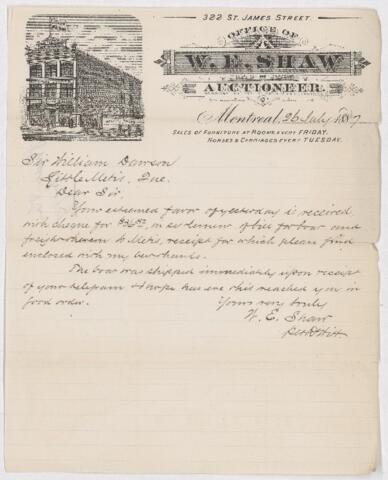 322 ST. JAMES STREET.
OFFICE OF
W. E. SHAW
AUCTIONEER.
Montreal, 26 July 1887
SALES OF FURNITURE AT ROOMS EVERY FRIDAY.
HORSES & CARRIAGES EVERY TUESDAY.
Sir William Dawson
Little Metis, Que.
Dear Sir,
Your esteemed favor of yesterday is received
with cheque for in settlement of bill for boat and
freight thereon to Metis, receipt for which please find
enclosed with my best thanks.
The boat was shipped immediately upon receipt
of your telegram & I hope has ere this reached you in
good order.
Yours very truly
W. E. Shaw